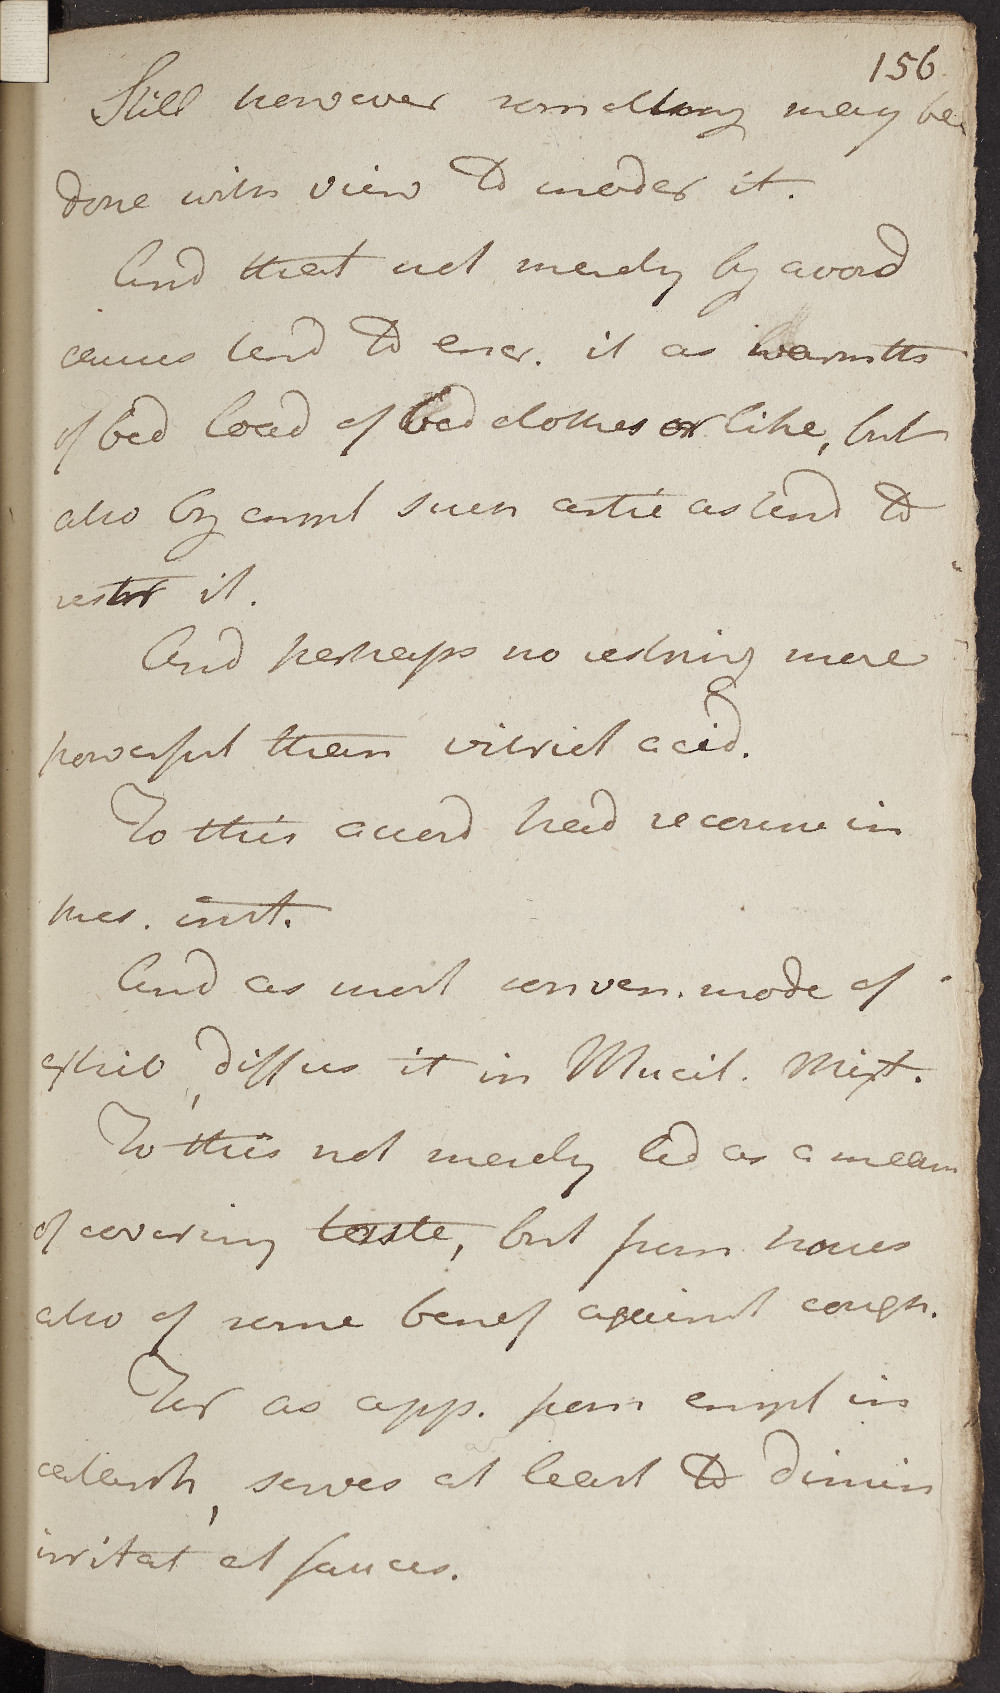 156
Still however something may be
done with view to moder it.
And that not merely by avoid
causes tend to encr. it as warmth
of bed load of bed clothes or like, but
also by empl such artic as tend to
restr it.
And perhaps no restring more
powerful than vitriol acid.
To this accord had recourse in
pres. inst.
And as most conven. mode of
exhib, diffus it in Mucil. Mixt.
To this not merely led as a mean
of covering taste, but from hopes
also of some benef against cough.
For as app. from empl in
catarrh, serves at least to dimin
irritat at fauces.